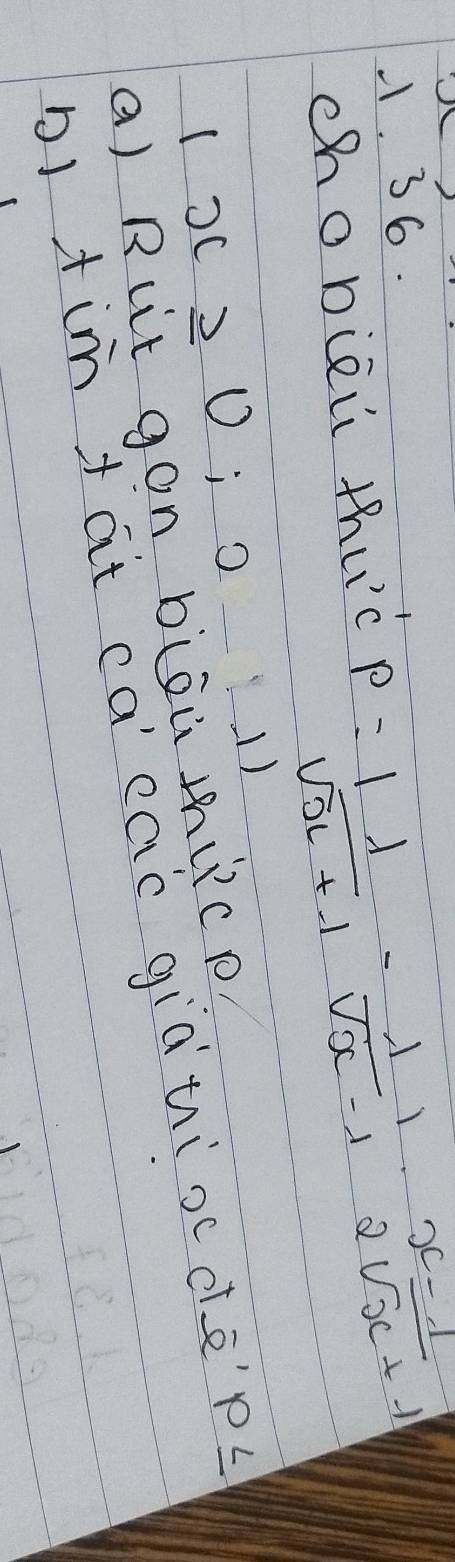 1.36.
cho biểu thức P = ( 1/(√x+1) - 1/(√x-1) ) . (x-1)/(2√x+1)
( x ≥ 0 ; 1)
a) Rút gọn biểu thức P
b) tìm tất cả các giá trị x để P ≤